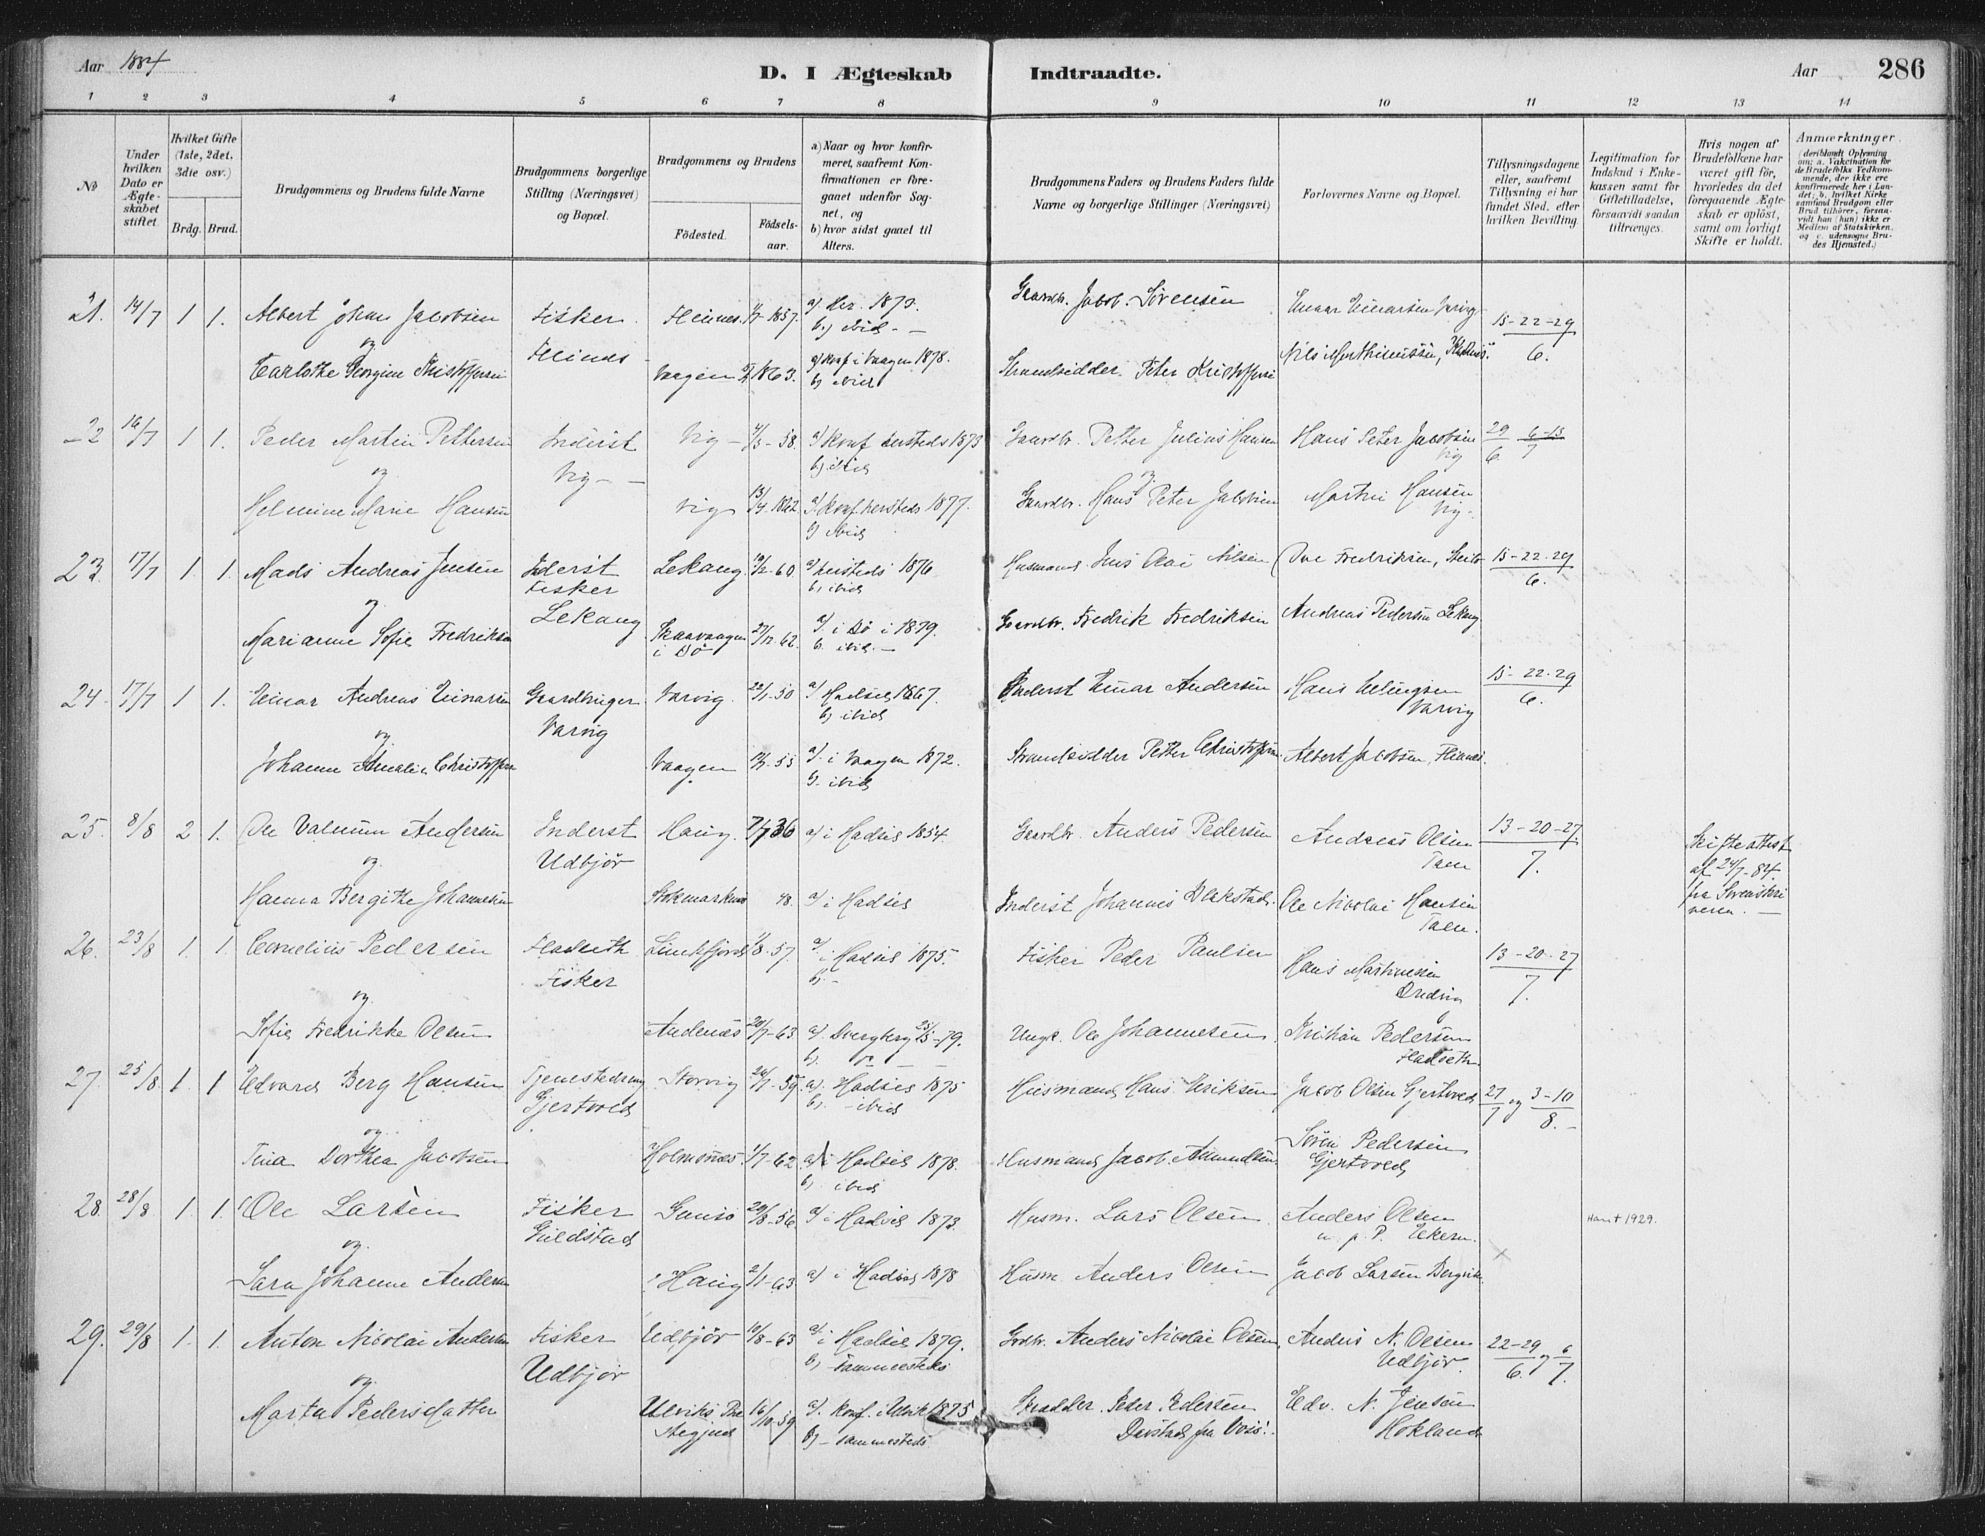 Aar 1884 D. I Ægteskab Indtraadte. Aar 286
1 2 3 4 5 6 7 8 9 10 11 12 13 14
No
Under hvilken Dato er Ægteskabet stiftet
Hvilket Gifte (1ste, 2det, 3die osv.)
Brdg. Brud.
Brudgommens og Brudens fulde Navne
Brudgommens borgerlige Stilling (Næringsvei) og Bopæl.
Brudgommens og Brudens
Födested. Födselsaar.
a) Naar og hvor konfirmeret, saafremt Konfirmationen er foregaaet udenfor Sognet, og
b) hvor sidst gaaet til Alters.
Brudgommens Faders og Brudens Faders fulde Navne og borgerlige Stillinger (Næringsvei)
Forlovernes Navne og Bopæl.
Tillysningsdagene eller, saafremt Tillysning ei har fundet Sted, efter hvilken Bevilling
Legitimation for Indskud i Enkekassen samt for Giftetilladelse, forsaavidt saadan tiltrænges.
Hvis nogen af Brudefolkene har været gift för, hvorledes da det foregaaende Ægteskab er oplöst, samt om lovligt Skifte er holdt.
Anmærkninger.
(deriblandt Oplysning om: a. Vakcination for de Brudefolks Vedkommende, der ikke ere konfirmerede her i Landet; b. hvilket Kirkesamfund Brudgom eller Brud tilhörer, forsaavidt han (hun) ikke er Medlem af Statskirken, og c. udensogns Brudes Hjemsted.)
21. 14/7 1 1. Albert Johan Jacobsen Fisker Fleines 1857. a) her 1873. Gaardbr. Jacob Sørensen Einar Einarsen Varvig 15-22-29
og Fleines b) ibid 6.
Georgine Vaagen 1863. a) konf i Vaagen 1878. Strandsidder Peter Nils Mørthinussen,
b) ibid
22 16/7 1 1. Peder Martin Pettersen Inderst Vig 58. a) Konf hersteds 1873 Gaardbr. Petter Julius Hansen Hans Peter Jacobsen 29 6-13
og Vig b) ibid og Vig 6. 7
Helmine Marie Hansen Vig 13/4 1862 a) Konf. hersteds 1877. Gaardbr. Hans Peter Jacobsen Martin Hansen
b) ibid Vig
23. 17/7 1. 1. Mads Andreas Jensen Inderst Lekang 60 a) hersteds 1876. Husmand Jens Nilsen Ove Fredriksen, 15-22-29
og Fisker b) ibid 6.
Marianne Sofie Fredriksen Lekang Skaarvaagen i Bø 27/12 62. a) i Bø i 1879. Gaardbr. Fredrik Fredriksen Andreas Pedersen Lekang
b. ibid.
24. 17/7 1 1. Einar Andreas Einarsen Gaardbruger Varvig. 22/1-50 a) Hadsel 1867. Inderst Einar Andersen Hans Ellingsen 15-22-29
og Varvig b) ibid Varvig 6.
Johanne Amalie Christoffersen Vaagen 55 a) i Vaagen 1872. Strandsidder Petter Christoffersen Albert Jacobsen, Fleines.
b. ibid
25. 8/8 2 1. Ole Andersen Inderst Haug. 7/7 36 a) i Hadsel 1854. Gaardbr. Anders Pedersen Andreas Olsen 13-20-27 Skifteattest
og Udbjør Taen 7. af 24/7-84.
Hanna Bergithe Johannesen Stokmarknes 48. a) i Hadsel Inderst Johannes Blakstad. Ole Nicolai Hansen fra Sorenskriveren.
Taen.
26. 23/8 1. 1. Cornelius Pedersen Fladseth 8-57. a) i Hadsel 1875. Fisker Peder Paulsen Hans Martinussen 13-20-27
og Fisker b) 7.
Sofie Fredrikke Olsen Andenæs 20/7-63 a) Dverberg 25/5-79. Ungk. Ole Johannesen Kristian Pedersen
b). Fladseth
27. 25/8 1. 1 Edvard Berg Hansen Tjenestedreng Storvig 59. a). Hadsel 1875 Husmand Hans Eriksen Jacob Olsen Gjertvedt 27 og 3-10
og Gjertved b). ibid 7 8.
Tina Dorthea Jacobsen Holmsnæs 1/7-62. a) i Hadsel 1878. Husmand Jacob Amundsen Søren Pedersen
b). ibid Gjertved
28. 28/8 1. 1. Ole Larsen Fisker 29/8-56 a) i Hadsel 1873. Husm. Lars Olsen Anders Olsen Han † 1929.
og Guldstad
Sara Johanne Andersen Haug 2/1-63 a) i Hadsel 1878 Husm. Anders Olsen Jacob Larsen
29. 29/8 1. 1. Anton Nicolai Andersen Fisker Udbjør 8-63 a) i Hadsel 1879. Grdbr. Anders Nicolai Olsen, Anders N. Olsen 22-29 og 6
og Udbjør b) sammesteds Udbjør. 6. 7.
Marta Pedersdatter Ulviks 16/10-59 a) konf. i Ulvik 1875 Peder Pedersen Edv. N. Jensen
b) sammesteds fra Voss. Hokland